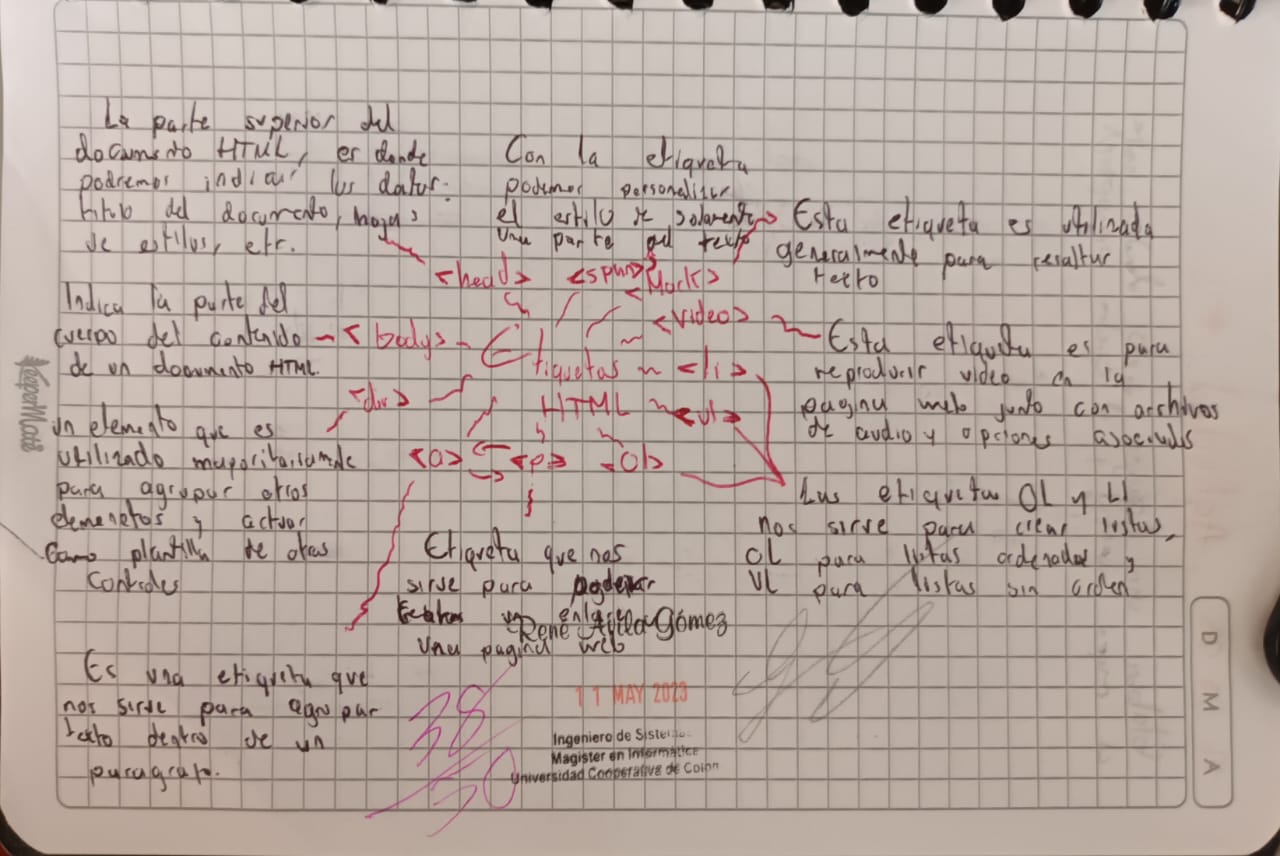 La parte superior del
documento HTML, es donde
podremos indicar los datos:
titulo del documento, hojas
de estilos, etc.
Con la etiqueta
podemos personalizar
el estilo de solamente
una parte del texto
Esta etiqueta es utilizada
generalmente para resaltar
texto
<head>
<span>
<Mark>
<video>
Indica la parte del
cuerpo del contenido
de un documento HTML.
<body>
Etiquetas
HTML
<li>
<ul>
<ol>
<p>
<a>
<div>
Esta etiqueta es para
reproducir video en la
pagina web junto con archivos
de audio y opciones asociadas
un elemento que es
utilizado
para agrupar otros
elemenetos y actuar
Como plantilla de otras
Controles
Las etiquetas OL y LI
nos sirve para crear listas,
OL para listas ordenadas y
UL para listas sin orden
Etiqueta que nos
sirve para
un enlace
una pagina web
René Avila Gómez
Es una etiqueta que
nos sirve para agrupar
texto dentro de un
paragrafo.
38
50
11 MAY 2023
Ingeniero de Sistemas
Magister en Informática
Universidad Cooperativa de Colon
PaperMate
D M A